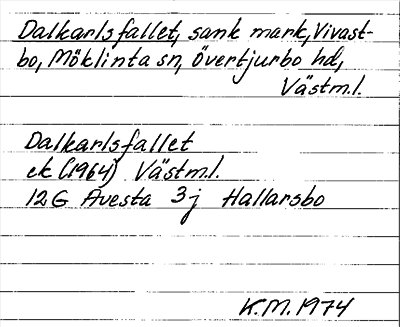 Dalkarlsfallet, sank mark, Vivast-
bo, Möklinta sn, Övertjurbo hd,
Västm.l.
Dalkarlsfallet
ek (1964) Västm.l.
12G Avesta 3j Hallarsbo
K.M. 1974